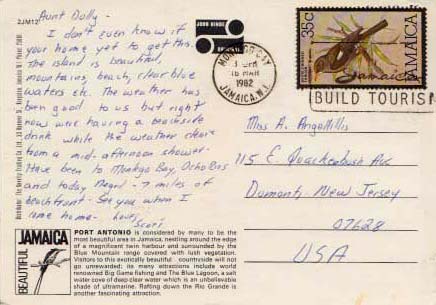 2JM12
Aunt Dolly -
I don't even know if
your home yet to get this.
The island is beautiful,
mountains, beach, clear blue
waters etc. The weather has
been good to us but right
now were having a beachside
drink while the weather clears
from a mid-afternoon shower.
Have been to Montego Bay, Ocho Rios
and today Negril - 7 miles of
beachfront - See you when I
come home -
Scott
JOHN HINDE
ORIGINAL
MONTEGO BAY
16 MAR
1982
JAMAICA, W.I.
35c
JAMAICA
Jamaica
BUILD TOURISM
Mrs A. AngeMillis
115 E. Quackenbush Ave
Dumont, New Jersey
07628
USA
BEAUTIFUL
JAMAICA
PORT ANTONIO is considered by many to be the
most beautiful area in Jamaica, nestling around the edge
of a magnificent twin harbour and surrounded by the
Blue Mountain range covered with lush vegetation.
Visitors to this exotically beautiful countryside will not
go unrewarded: its many attractions include world
renowned Big Game fishing and The Blue Lagoon, a salt
water cove of deep clear water which is an unbelievable
shade of ultramarine. Rafting down the Rio Grande is
another fascinating attraction.